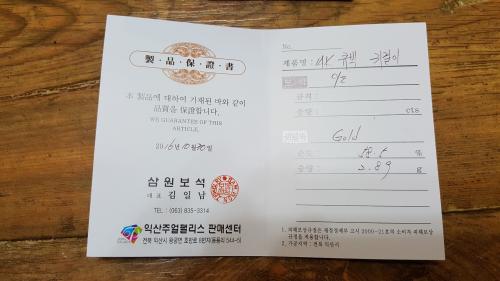 製·品·保·證·書
本 製品에 대하여 기재된 바와 같이
品質을 保證합니다.
WE GUARANTEE OF THIS
ARTICLE.
2016년 10월 30일
삼원보석
대표 김일남
TEL : (063) 835-3314
익산주얼팰리스 판매센터
전북 익산시 왕궁면 호반로 8번지(동용리 544-5)
No.
제품명 : 14K 큐빅 귀걸이
보석
C/Z
규격 :
중량 : cts
귀금속
Gold
순도 : 58.5 %
중량 : 2.89 g
1. 피해보상규정은 재정경제부 고시 2000-21호의 소비자 피해보상
규정을 적용합니다.
2. 가공지역 : 전북 익산시